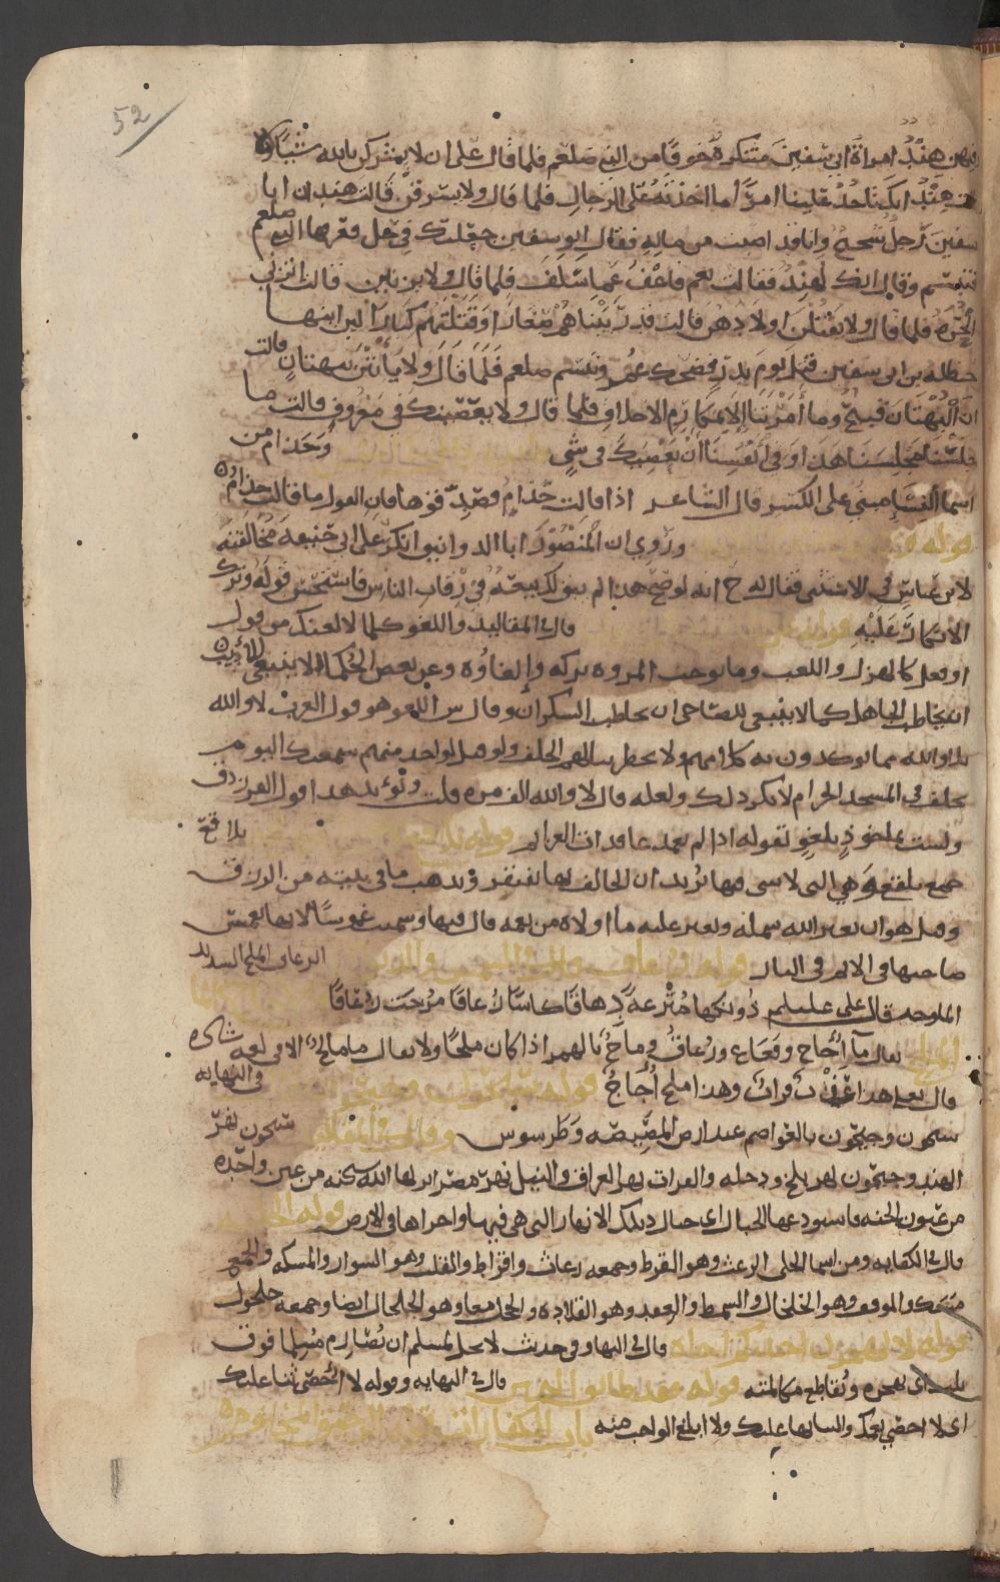 52
فيهن هند امراة ابي سفين متنكرة خوفا من النبي صلعم فلما قال على ان لا يشركن بالله شيئا
هند انك تاخذ علينا امرا ما اخذته على الرجال فلما قال ولا يسرقن قالت هند ان ابا
سفين رجل شحيح وانا قد اصبت من ماله فقال ابو سفين جعلتك في حل فعرفها النبي صلعم
فتبسم وقال انك لهند فقالت نعم فاعف عما سلف فلما قال ولا يزنين قالت اتزني
الحرة فلما قال ولا يقتلن اولادهن قالت قد ربيناهم صغارا وقتلتهم كبارا لان ابنها
حنظلة بن ابي سفين قتل يوم بدر فضحك عمر وتبسم صلعم فلما قال ولا ياتين ببهتان قالت
ان البهتان قبيح وما امرتنا الا بمكارم الاخلاق فلما قال ولا يعصينك في معروف قالت ما
جلسنا مجلسنا هذا وفي انفسنا ان نعصيك في شي وحذام من
اسما النسا مبني على الكسر قال الشاعر اذا قالت حذام فصدقوها فان القول ما قالت حذام
قوله وروي ان المنصور ابا الدوانيق انكر على ابي حنيفة مخالفته
لابن عباس في الاستثنى فقال له ح انه لو صح هذا لم يبق لك بيعة في رقاب الناس فاستحسن قوله وترك
الانكار عليه قال في المقاليد واللغو كلما لا يعتد به من قول
او فعل كالهزل واللعب وما توجب المروة تركه والغاؤه وعن بعض الحكما لا ينبغي
ان يخاطب الجاهل كما لا ينبغي للصاحي ان يخاطب السكران وقال س اللغو هو قول العرب لا والله
بلى والله مما يوكدون به كلامهم ولا يخطر ببالهم الحلف ولو قيل لواحد منهم سمعتك اليوم
تحلف في المسجد الحرام لانكر ذلك ولعله قال لا والله الف مرة قلت ويؤيد هذا قول الفرزدق
ولست بماخوذ بلغو تقوله اذا لم تعمد عاقدات العزايم قوله بلاقع
جمع بلقع وهي التي لا شي فيها يريد ان الحالف بها يفتقر ويذهب ما في بيته من الرزق
وقيل هو ان يفرق الله شمله ويغير عليه ما اولاه من نعمه قال فيها وسميت غموسا لانها تغمس
صاحبها في الاثم وفي النار الزعاق الملح الشديد
الملوحة قال علي عليلم دونكها مترعة دهاقا كاسا زعاقا مزجت زعاقا
يقال ما اجاج وقعاع وزعاق وماج بالهمز اذا كان ملحا ولا يقال ما مالح الا في لغة شاذة
قال تعالى هذا عذب فرات وهذا ملح اجاج في النهاية
سيحون وجيحون بالعواصم عند ارض المصيصة وطرسوس سيحون نهر
الهند وجيحون نهر بلخ ودجلة والفرات نهر العراق والنيل نهر مصر انزلها الله سبحنه من عين واحدة
من عيون الجنة فاستودعها الجبال اي جبال تلك الانهار التي هي فيها واجراها في الارض
قال في الكفاية ومن اسما الحلي الرعث وهو القرط وجمعه رعاث واقراط والقلب وهو السوار والمسكة والجمع
مسك والوقف وهو الخلخال والسمط والعقد وهو القلادة والحجل معا وهو الخلخال ايضا وجمعه حجول
قال في النهاو في حديث لا يحل لمسلم ان يصارم مسلما فوق
ثلاث اي يهجره ويقاطع مكالمته قال في النهاية وقوله لا احصي ثنا عليك
اي لا احصي نعمك والثنا بها عليك ولا ابلغ الواجب منه باب الكفارات